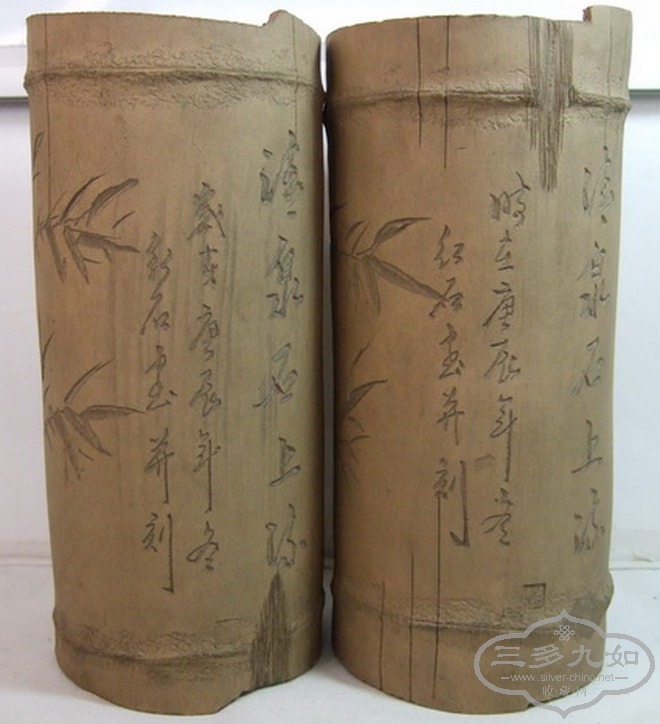 清泉石上流
歲在庚辰年冬
紅石畫并刻
清泉石上流
時在庚辰年冬
紅石畫并刻
三多九如
www.silver-china.net
收藏网